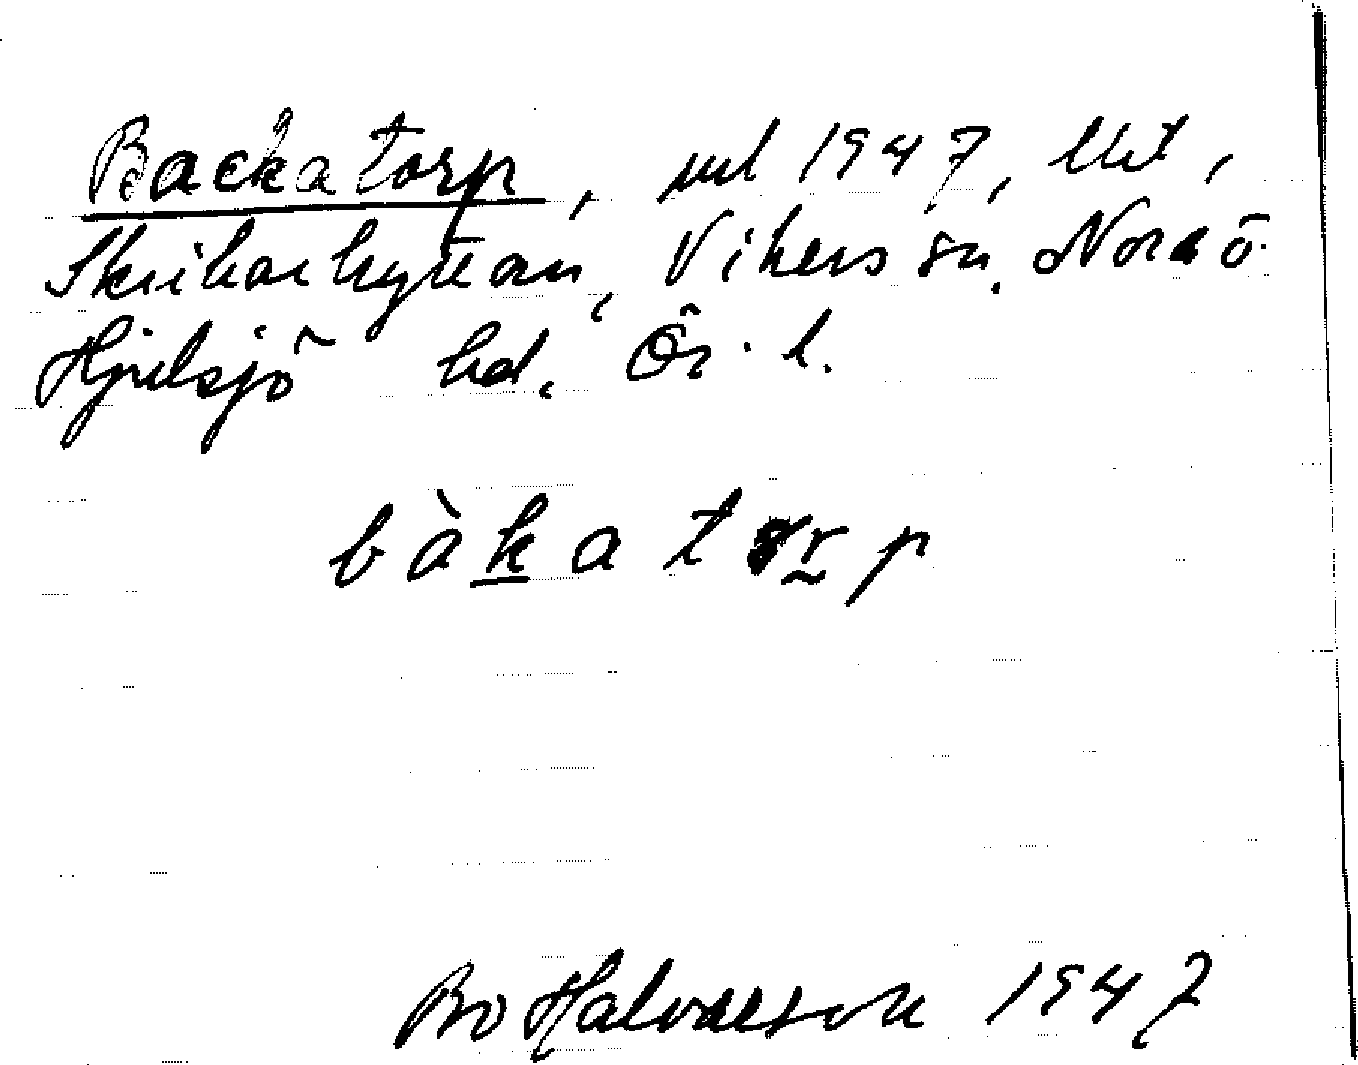 Backatorp, ml 1947, Utt,
Skrikarhyttan, Vikers sn. Nora o
Hjulsjö hd. Ör. l.
bàkatorp
Bo Halvarson 1947